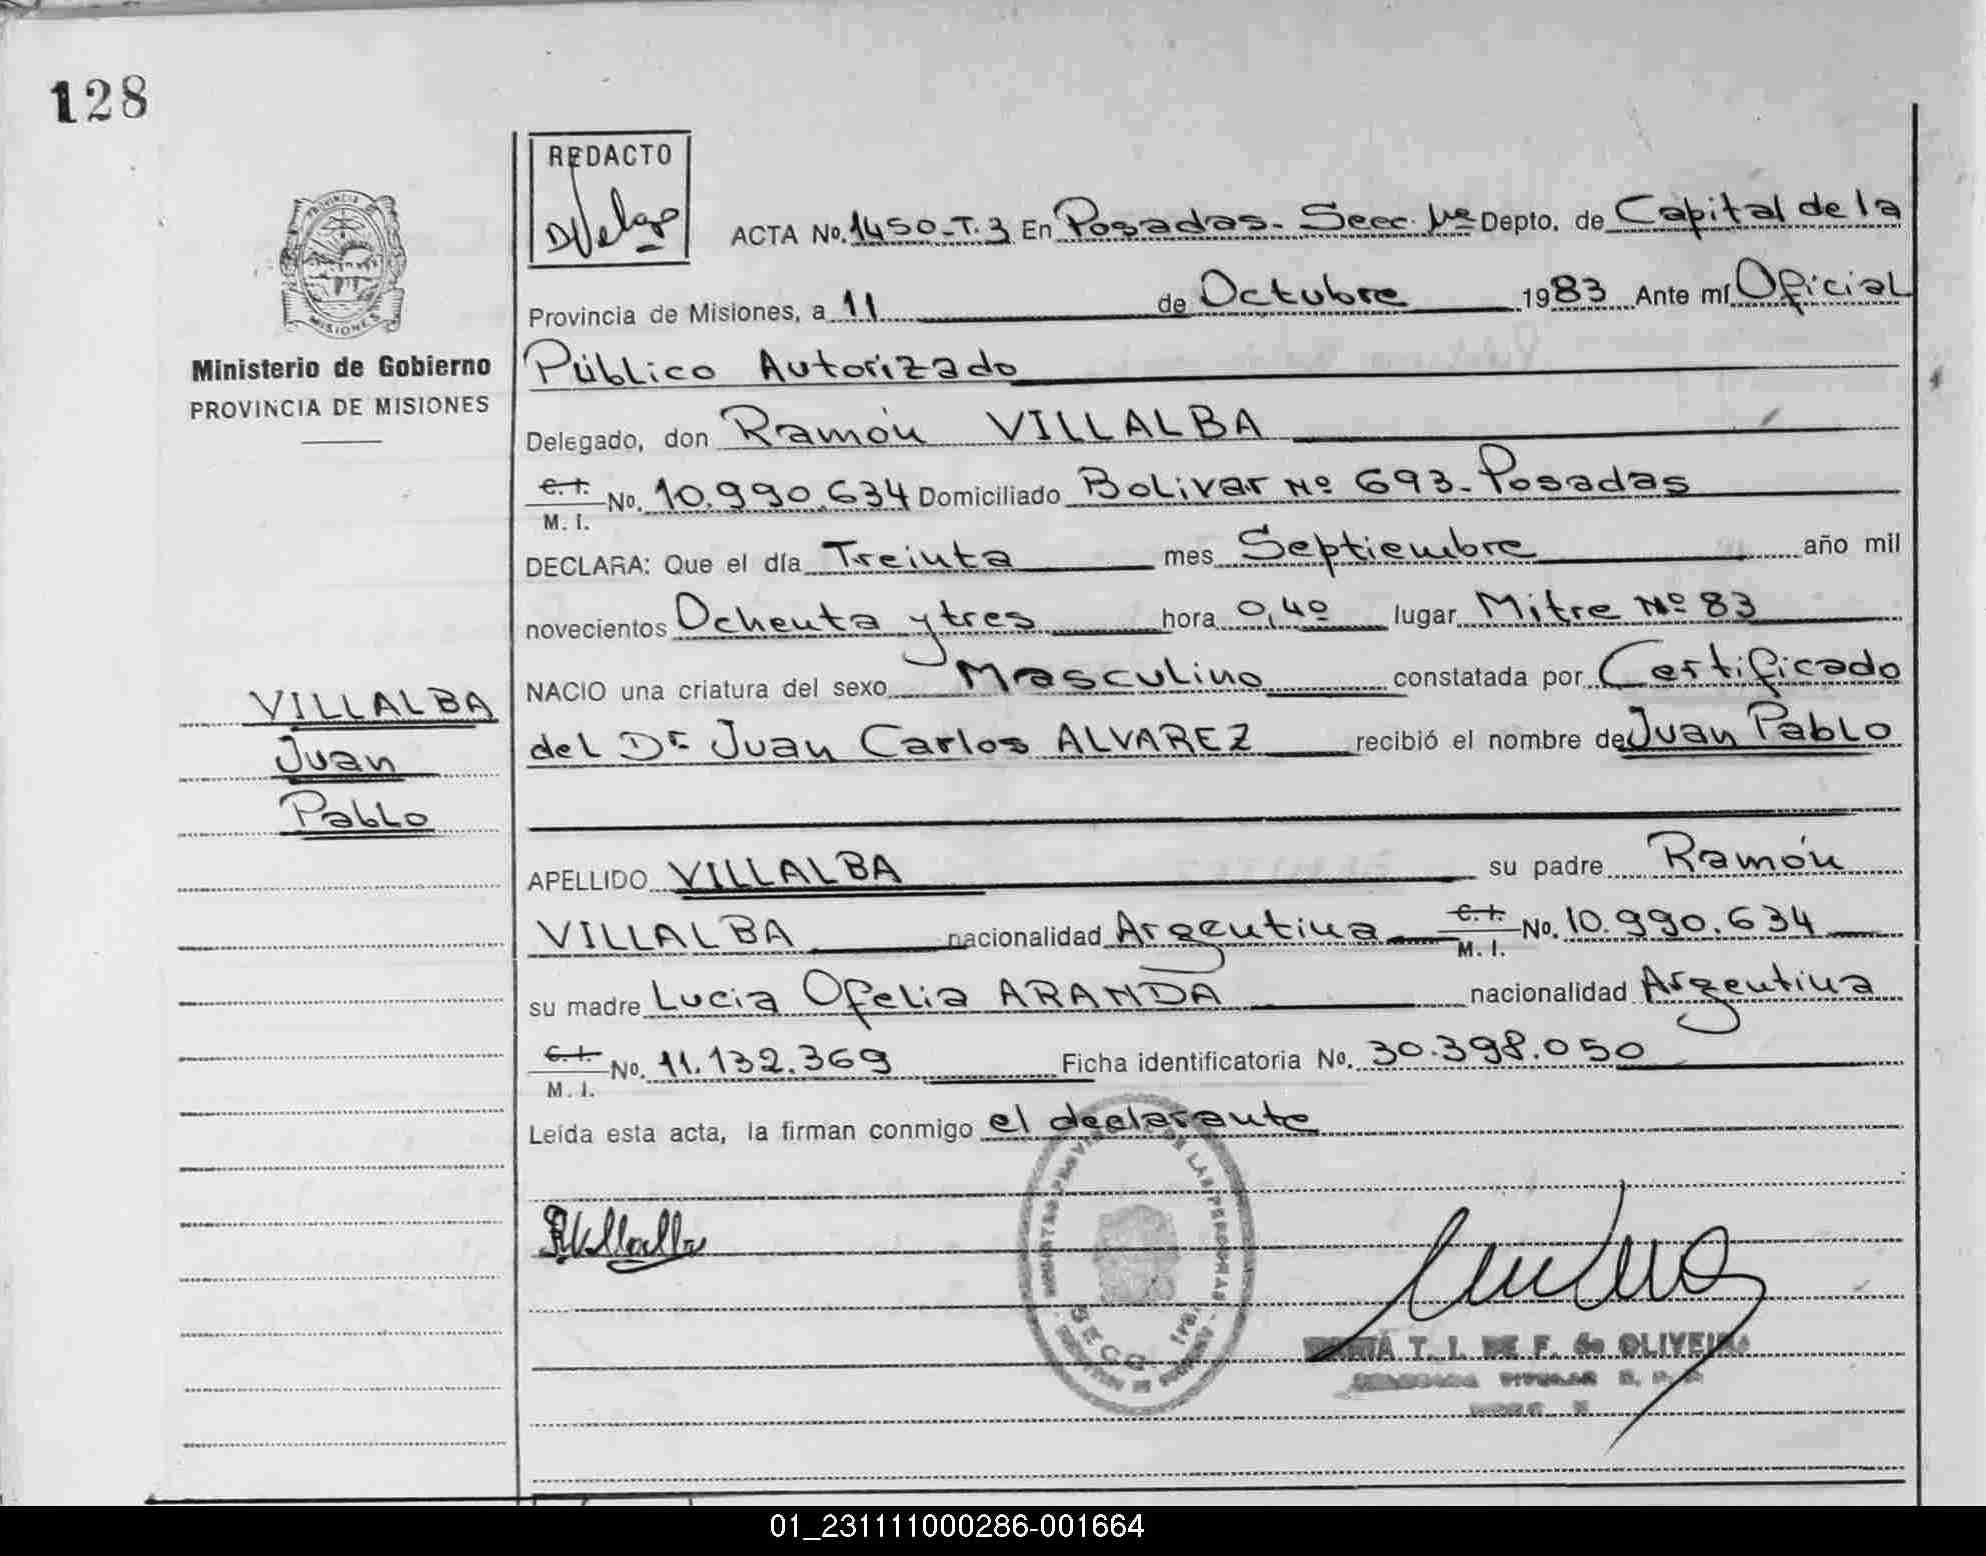 128
REDACTO
PROVINCIA DE
MISIONES
Ministerio de Gobierno
PROVINCIA DE MISIONES
ACTA No. 1450-T.3 En Posadas- Secc. 1ra Depto. de Capital de la
Provincia de Misiones, a 11 de Octubre 1983 Ante mí Oficial
Público Autorizado
Delegado, don Ramón VILLALBA
C. I. M. I. No. 10.990.634 Domiciliado Bolivar Nº 693- Posadas
DECLARA: Que el día Treinta mes Septiembre año mil
novecientos Ochenta y tres hora 0,40 lugar Mitre Nº 83
NACIO una criatura del sexo Masculino constatada por Certificado
del Dr Juan Carlos ALVAREZ recibió el nombre de Juan Pablo
VILLALBA
Juan
Pablo
APELLIDO VILLALBA su padre Ramón
VILLALBA nacionalidad Argentina C. I. M. I. No. 10.990.634
su madre Lucia Ofelia ARANDA nacionalidad Argentina
C. I. M. I. No. 11.132.369 Ficha identificatoria No. 30.398.050
Leída esta acta, la firman conmigo el declarante
DE LAS PERSONAS
SECC. 1ra
T. I. DE F. de OLIVEIRA
01_231111000286-001664